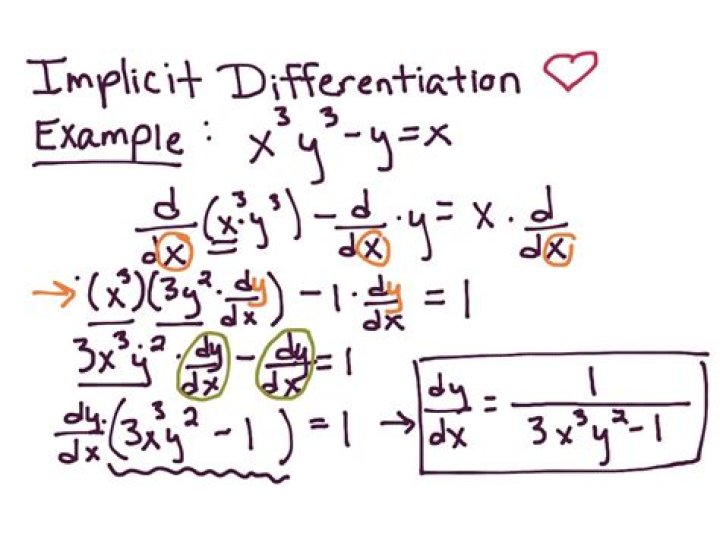 Implicit Differentiation ♡
Example: x³y³ - y = x
d/dx (x³·y³) - d/dx · y = x · d/dx
→ (x³)(3y² · dy/dx) - 1 · dy/dx = 1
3x³y² · dy/dx - dy/dx = 1
dy/dx · (3x³y² - 1) = 1 → dy/dx = 1/(3x³y² - 1)